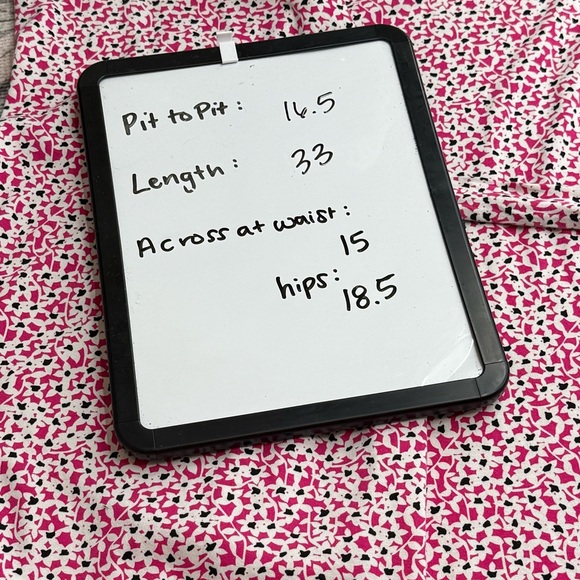 Pit to Pit: 16.5
Length: 33
Across at waist:
15
hips:
18.5